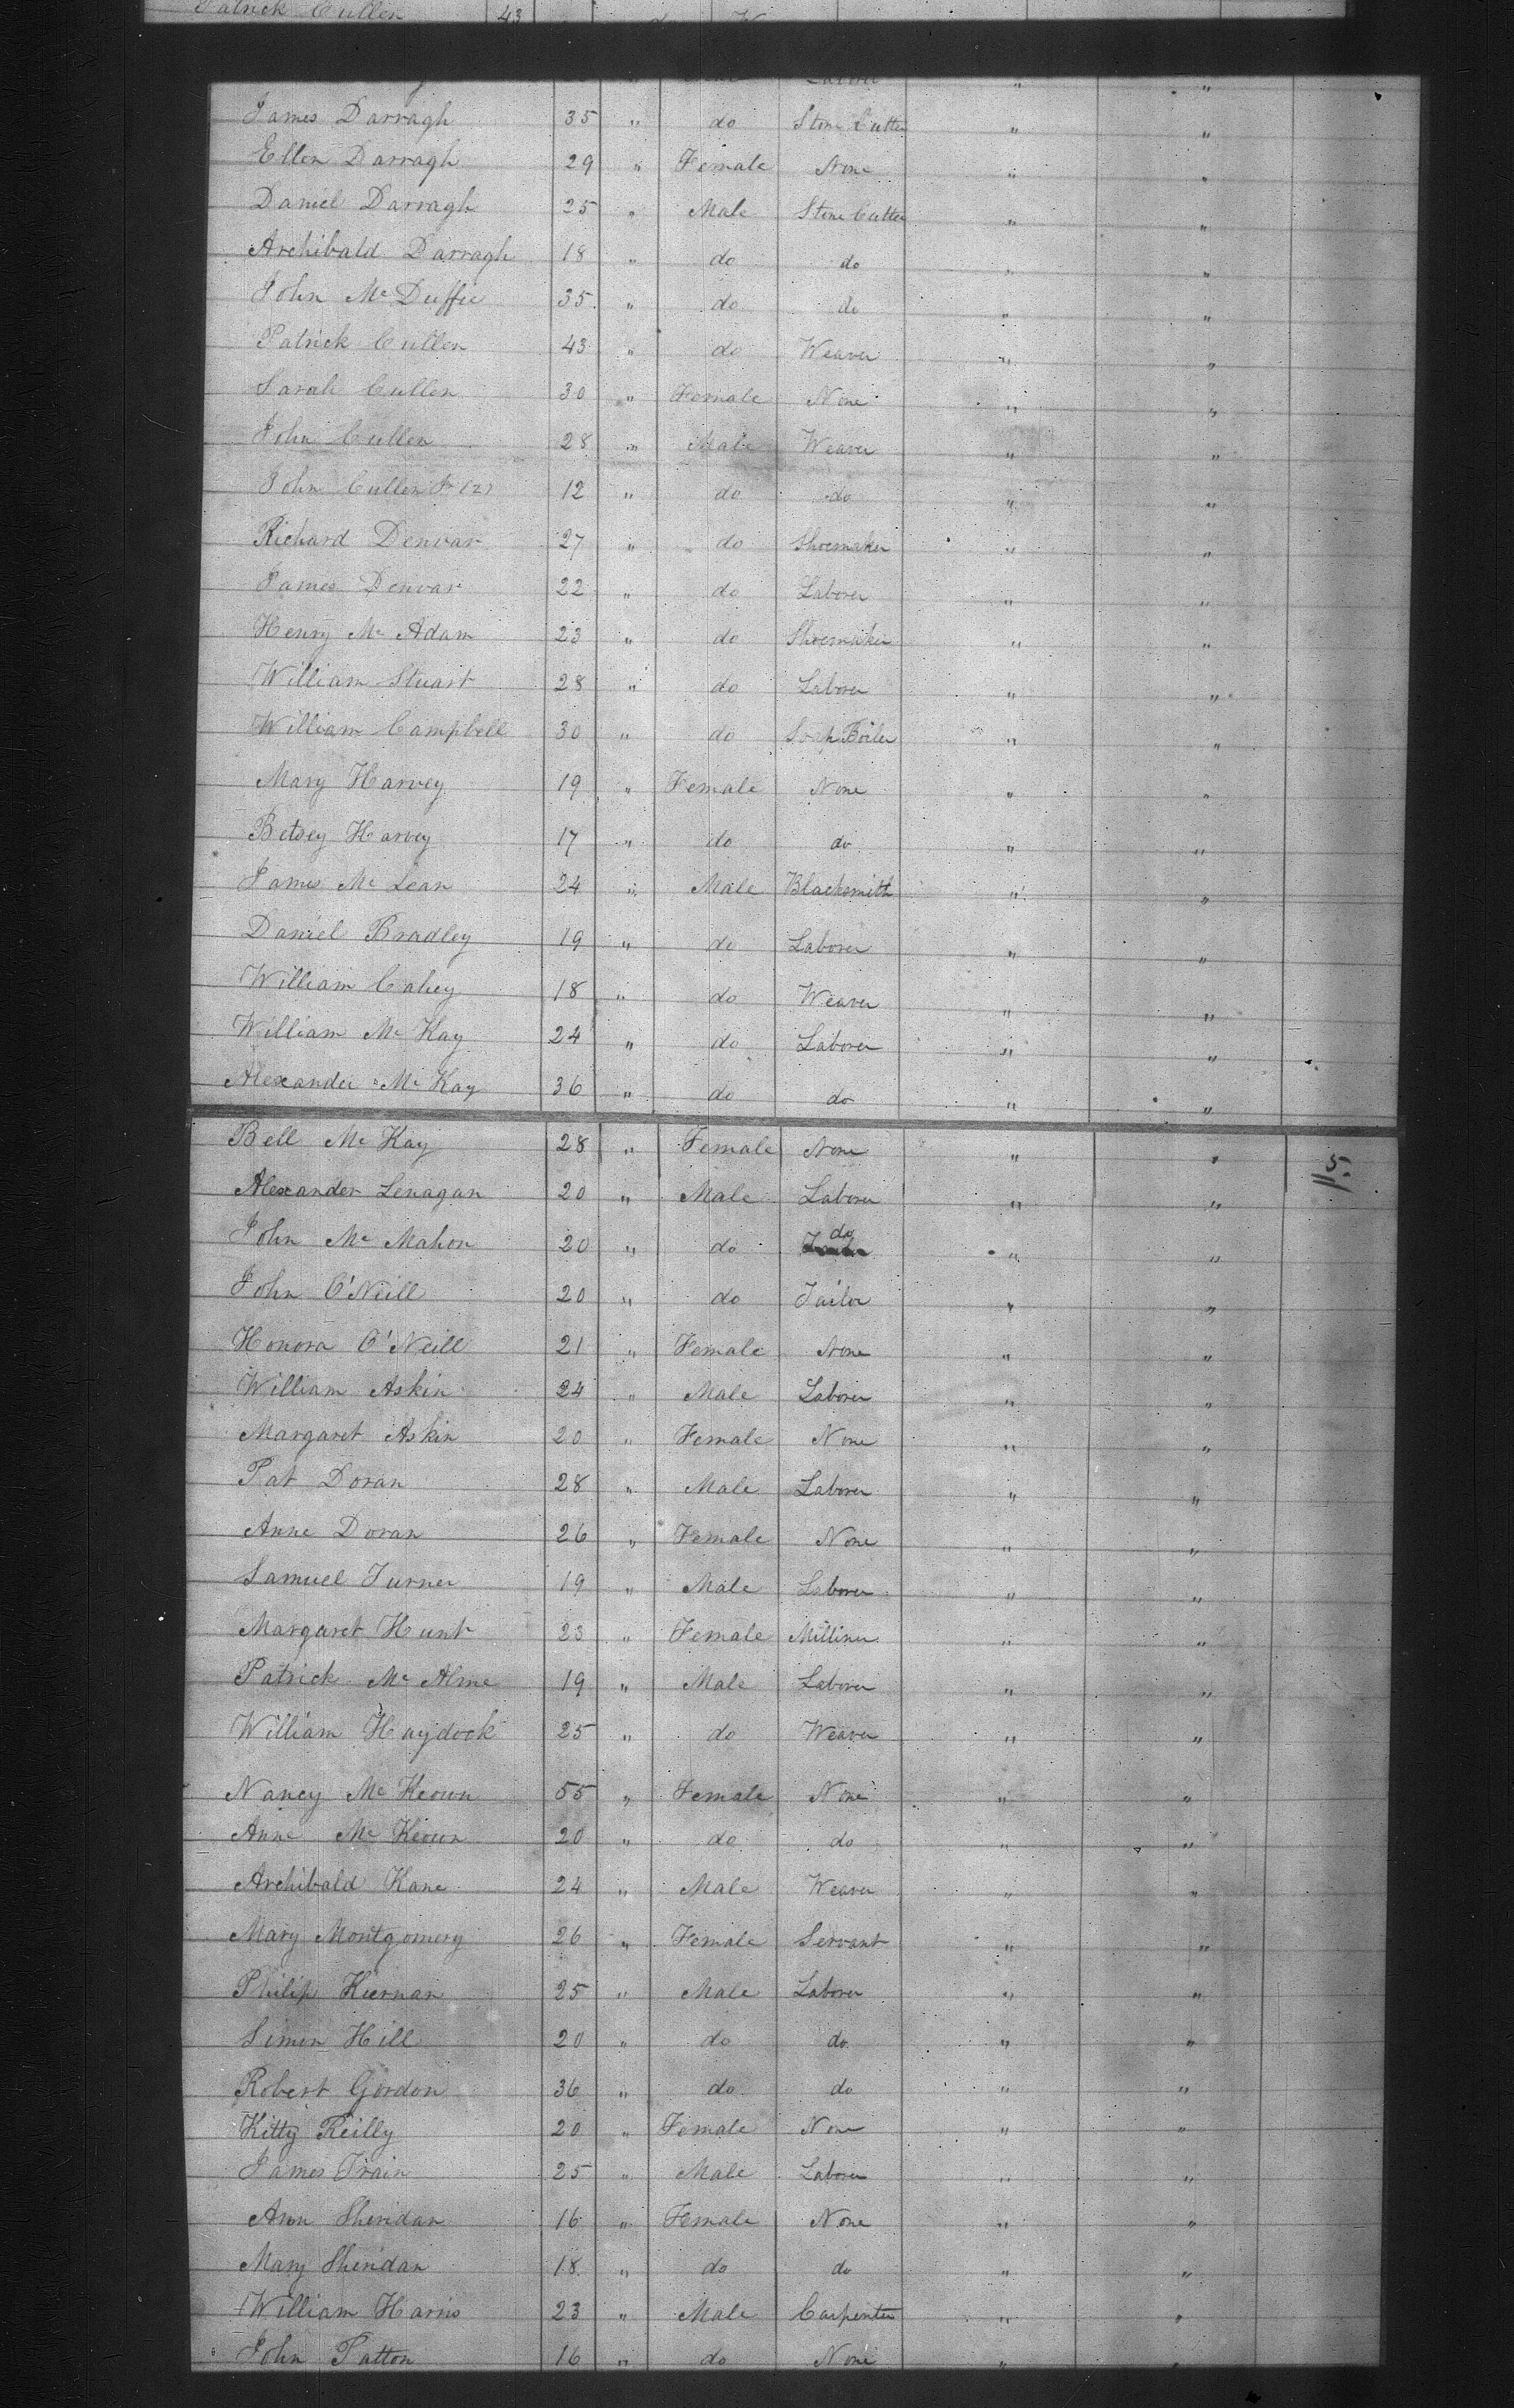 Patrick Cullen 43
Laborer " "
James Darragh 35 " do Stone Cutter " "
Ellen Darragh 29 " Female None " "
Daniel Darragh 25 " Male Stone Cutter " "
Archibald Darragh 18 " do do " "
John Mc Duffie 35 " do do " "
Patrick Cullen 43 " do Weaver " "
Sarah Cullen 30 " Female None " "
John Cullen 28 " Male Weaver " "
John Cullen Jr (2) 12 " do do " "
Richard Denvar 27 " do Shoemaker " "
James Denvar 22 " do Laborer " "
Henry Mc Adam 23 " do Shoemaker " "
William Stuart 28 " do Laborer " "
William Campbell 30 " do Soap Boiler " "
Mary Harvey 19 " Female None " "
Betsey Harvey 17 " do do " "
James Mc Lean 24 " Male Blacksmith " "
Daniel Bradley 19 " do Laborer " "
William Cahey 18 " do Weaver " "
William Mc Kay 24 " do Laborer " "
Alexander Mc Kay 36 " do do " "
Bell Mc Kay 28 " Female None " " 5.
Alexander Lenagan 20 " Male Laborer " "
John Mc Mahon 20 " do do " "
John O'Neill 20 " do Tailor " "
Honora O'Neill 21 " Female None " "
William Askin 24 " Male Laborer " "
Margaret Askin 20 " Female None " "
Pat Doran 28 " Male Laborer " "
Anne Doran 26 " Female None " "
Samuel Turner 19 " Male Laborer " "
Margaret Hunt 23 " Female Milliner " "
Patrick Mc Alme 19 " Male Laborer " "
William Haydock 25 " do Weaver " "
Nancy Mc Keown 55 " Female None " "
Anne Mc Keown 20 " do do " "
Archibald Kane 24 " Male Weaver " "
Mary Montgomery 26 " Female Servant " "
Philip Kiernan 25 " Male Laborer " "
Simon Hill 20 " do do " "
Robert Gordon 36 " do do " "
Kitty Reilly 20 " Female None " "
James Train 25 " Male Laborer " "
Ann Sheridan 16 " Female None " "
Mary Sheridan 18 " do do " "
William Harris 23 " Male Carpenter " "
John Patton 16 " do None " "